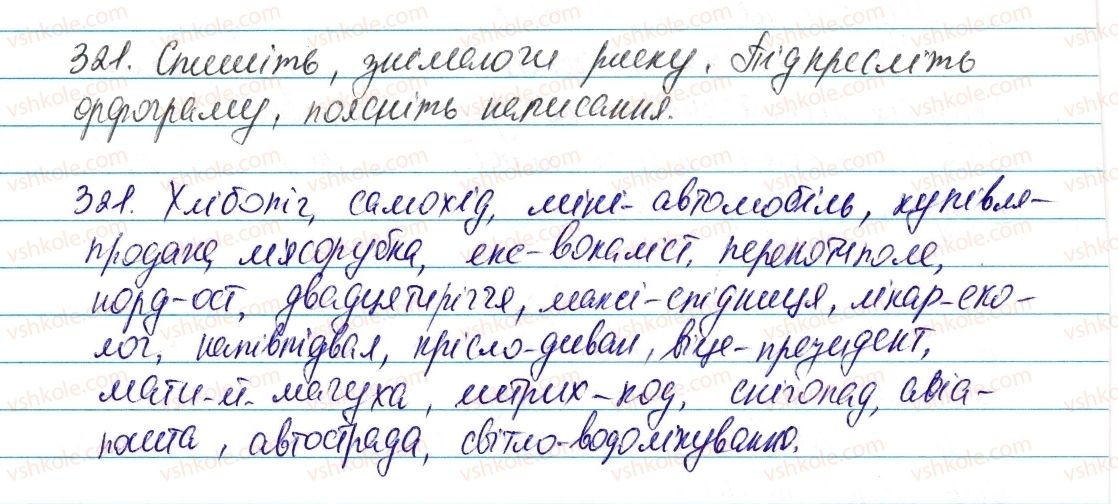 321. Спишіть, знімаючи риску. Підкресліть
орфограму, поясніть написання.
321. Хлібопіч, самохід, міні-автомобіль, купівля-
продаж, м'ясорубка, екс-вокаліст, перекотиполе,
норд-ост, двадцятиріччя, максі-спідниця, лікар-еко-
лог, напівпідвал, крісло-диван, віце-президент,
мати-й-мачуха, штрих-код, снігопад, авіа-
пошта, автострада, світло-водолікування.